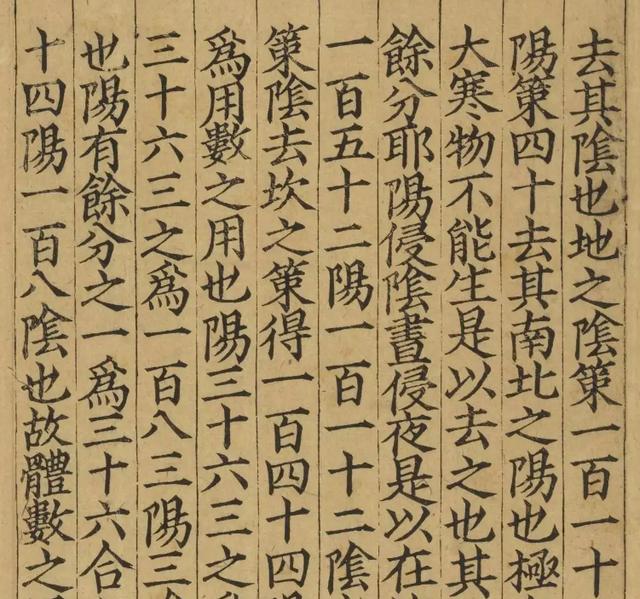 去其陰也地之陰策一百一十
陽策四十去其南北之陽也極
大寒物不能生是以去之也其
餘分耶陽侵陰晝侵夜是以在
一百五十二陽一百一十二陰
策陰去坎之策得一百四十四
爲用數之用也陽三十六三之
三十六三之爲一百八三陽三
也陽有餘分之一爲三十六合
十四陽一百八陰也故體數之